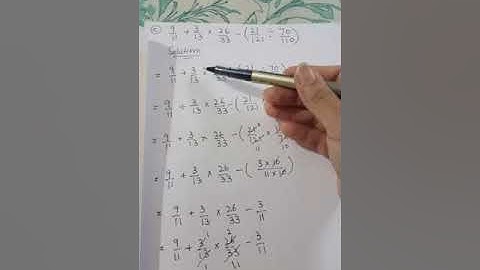 c) 9/11 + 3/13 × 26/33 - (21/121 ÷ 70/110)
Solution
= 9/11 + 3/13 × 26/33 - (21 ÷ 70)
= 9/11 + 3/13 × 26/33 - (21
= 9/11 + 3/13 × 26/33 - (
= 9/11 + 3/13 × 26/33 - (3 × 10/11 × 10)
= 9/11 + 3/13 × 26/33 - 3/11
= 9/11 + 3/13 × 26/33 - 3/11